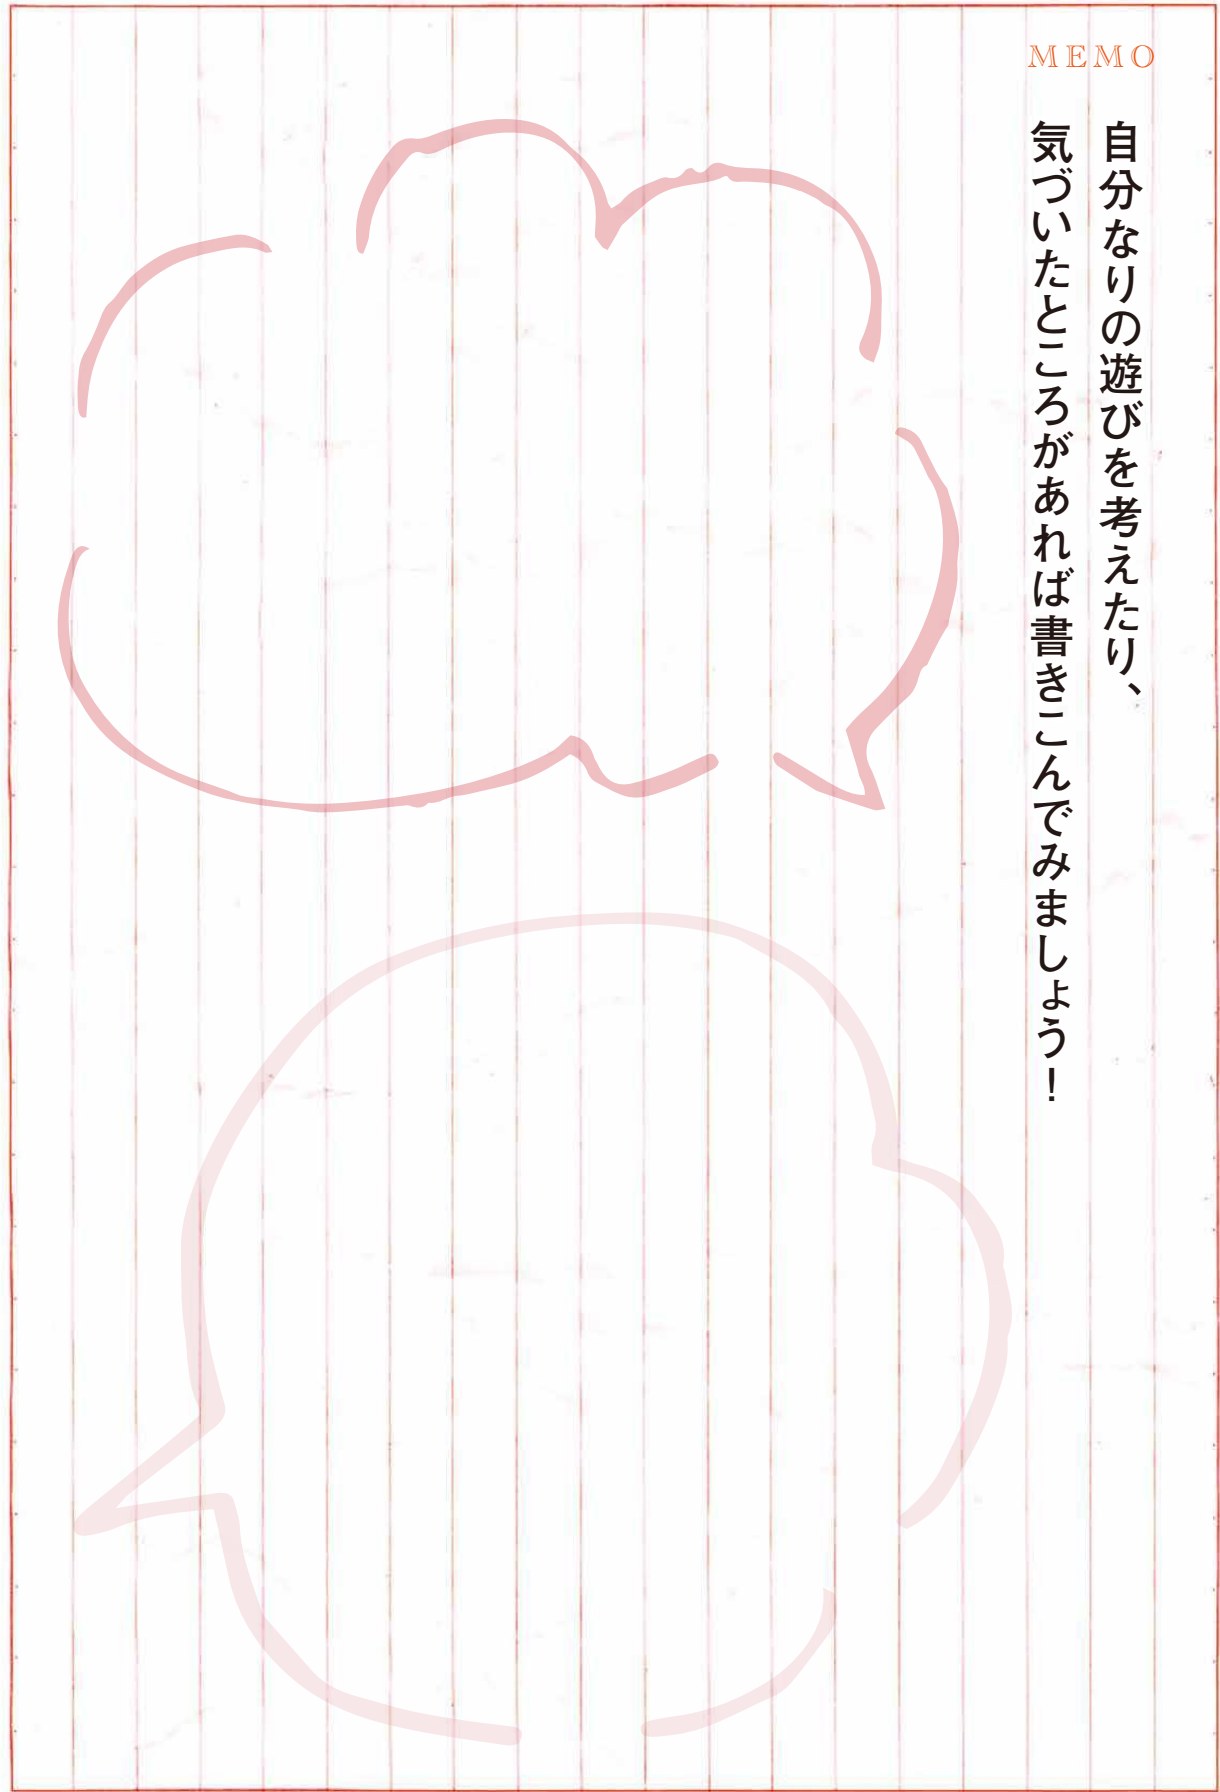 MEMO
自分なりの遊びを考えたり、
気づいたところがあれば書きこんでみましょう！